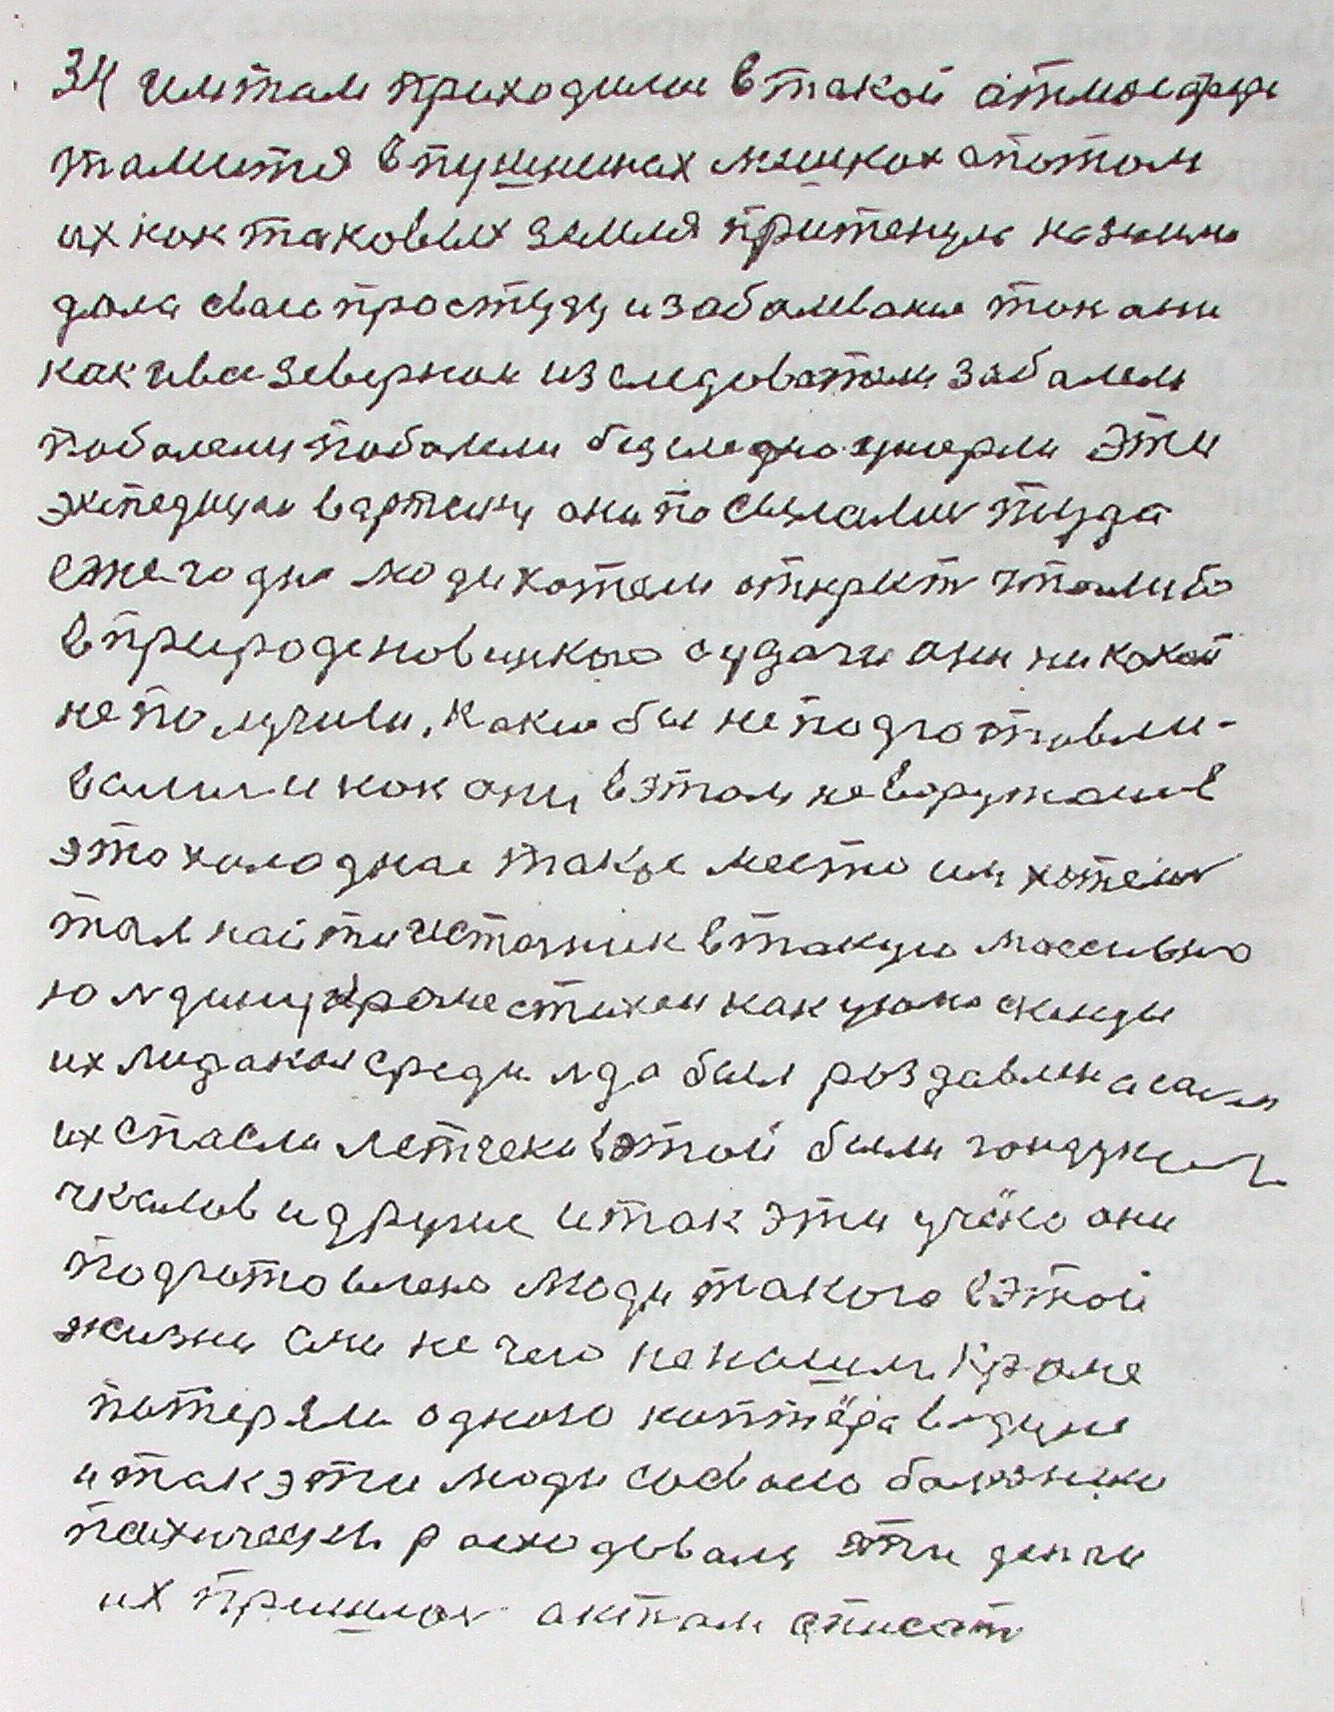 34 им там приходили в такой атмосфере
томится в пушиных мешках а потом
их как таковых земля притенула
дала сваю простуду и забалевание так они
как и все северные изследоватали забалели
поболели поболели безследно умерли эти
экпедиции в артику они посылали туда
ежегодно люди хотели открыт что либо
в природе новинкого а удачи они никакой
не получили, какие бы не подготовли-
вались и как они в этом не воружались
это холоднае такое место им хотелось
там найти источник в такую массивно
ю лдину кроме стихеи как
их лидакол среди лда был раздавлен а сами
их спасли летчеки в этой были
чкалов и другие и так эти учёно они
подготовлено люди такого в этой
жизни они не чего не нашли кроме
потеряли одного
и так эти люди сосваею болезнию
психически расходовали эти денги
их пришлось актом списат